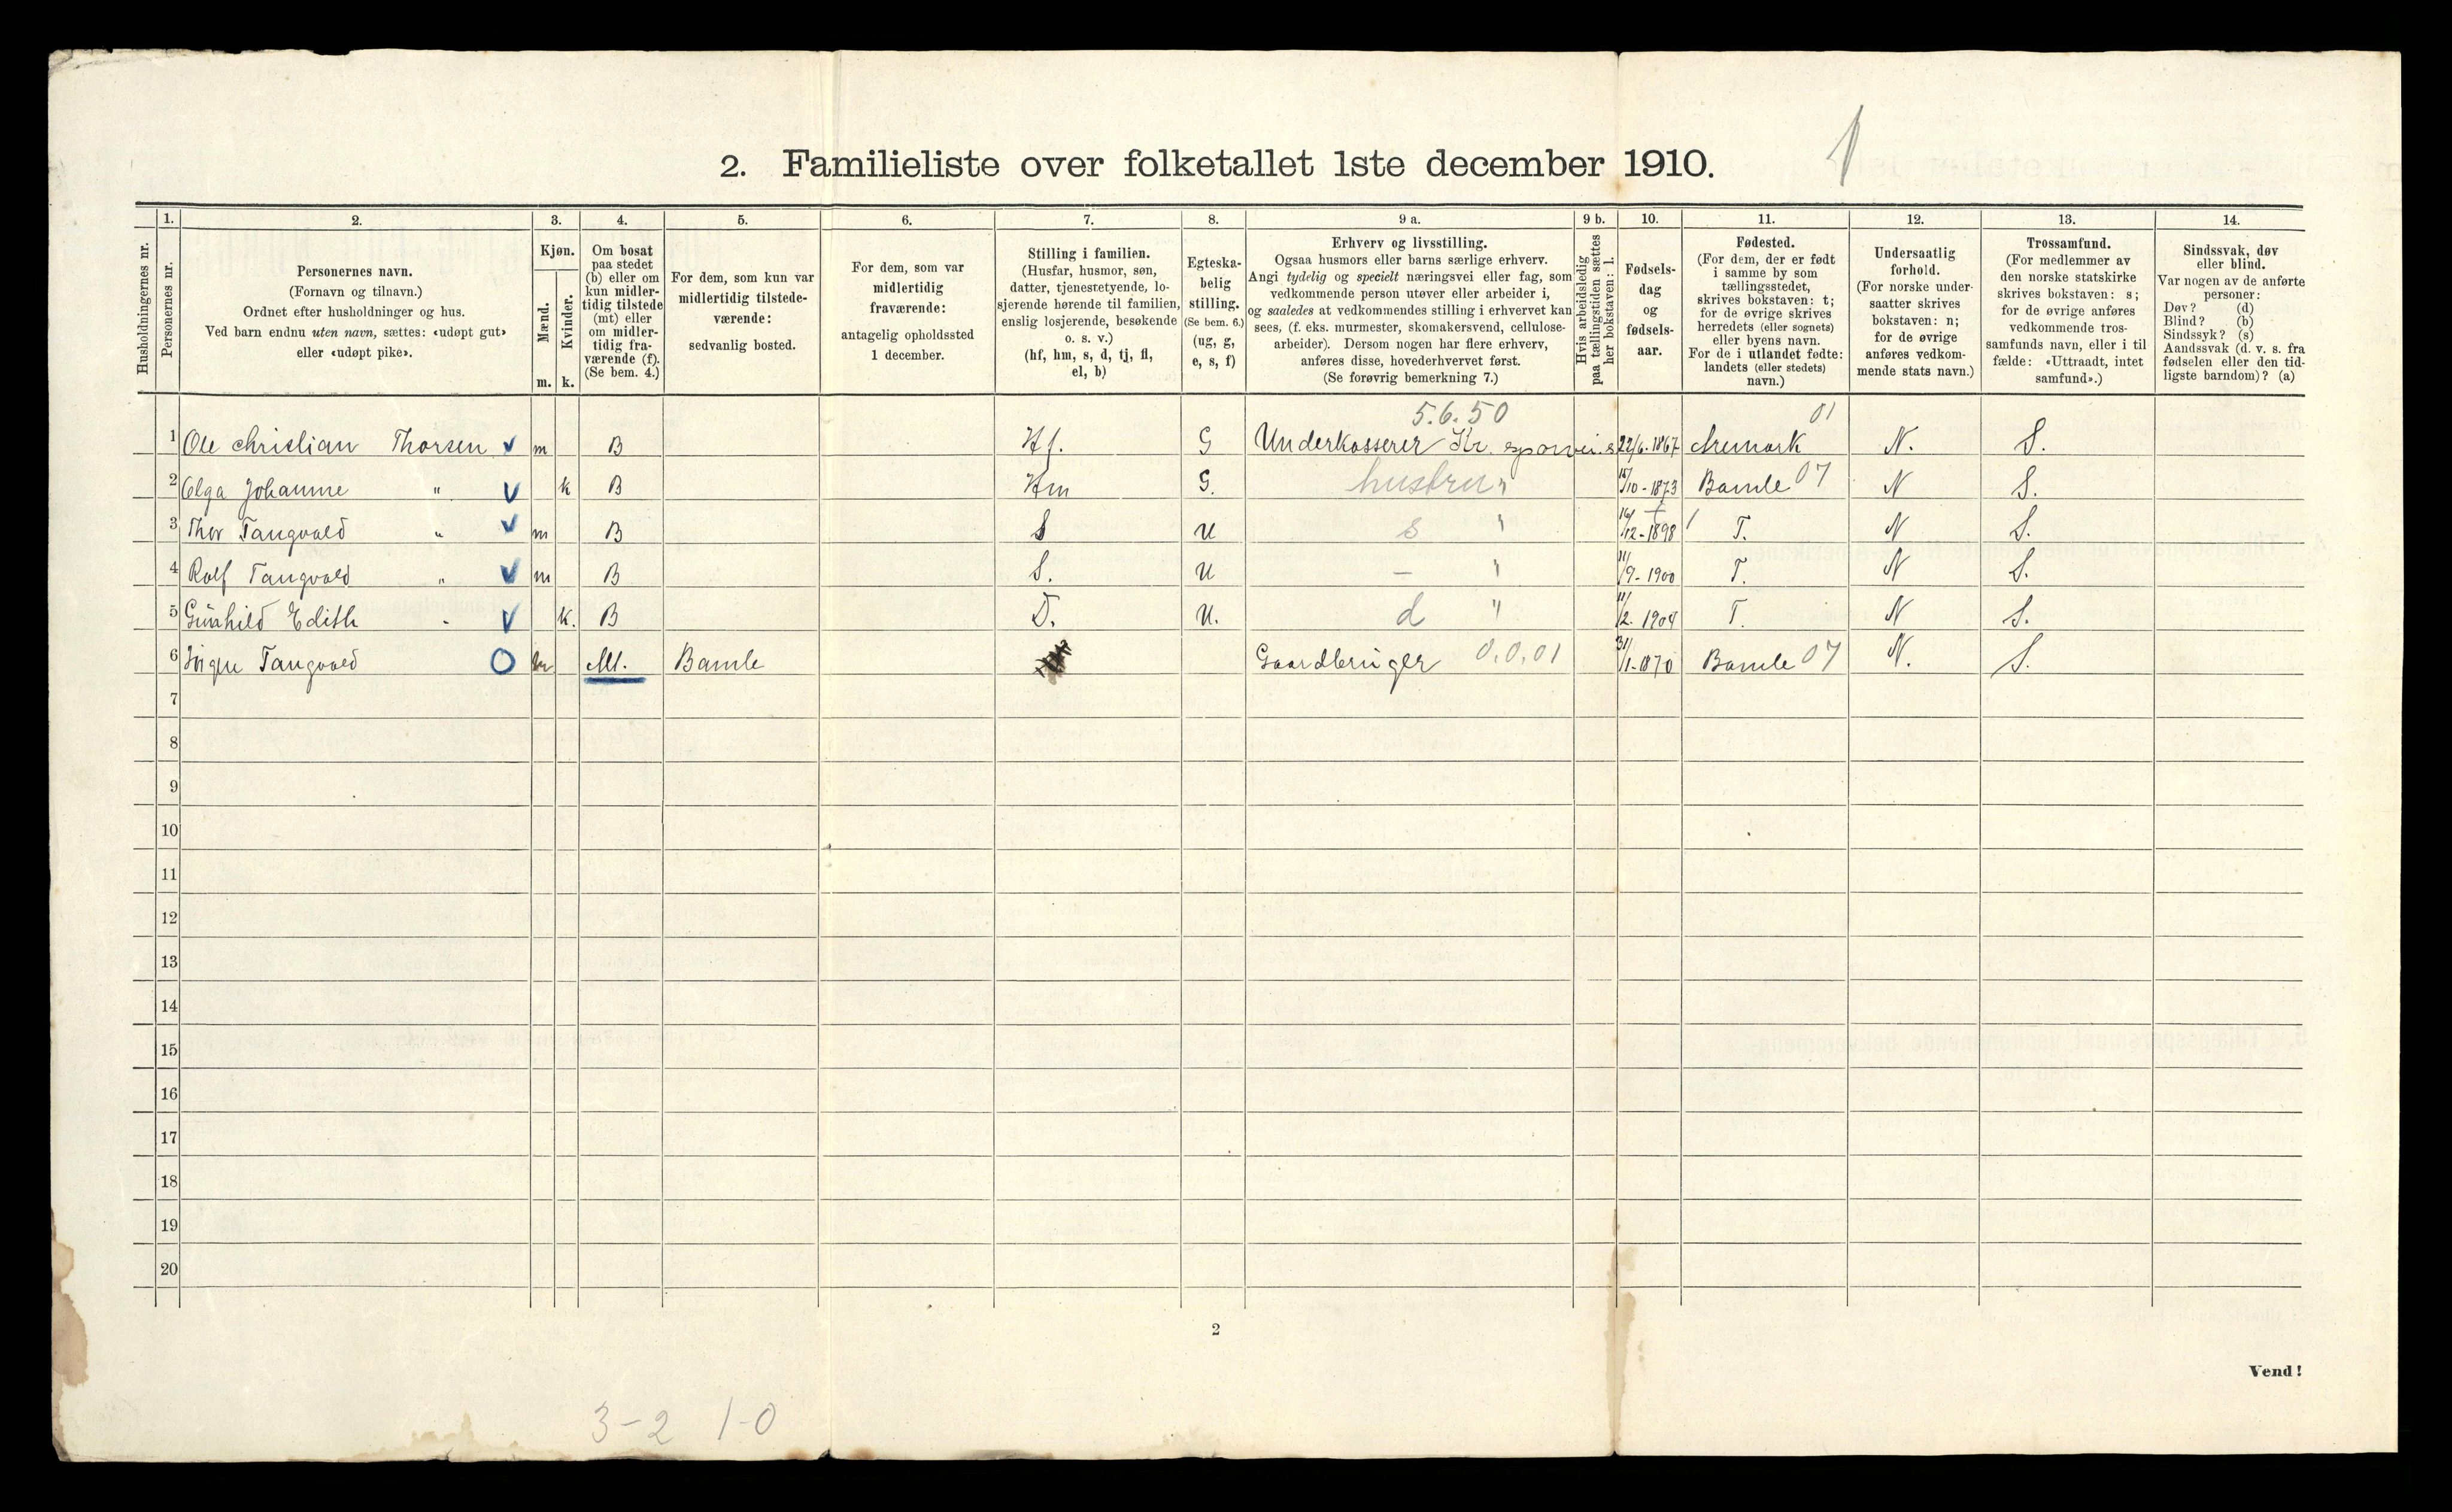 1
2. Familieliste over folketallet 1ste december 1910.
Husholdningernes nr.
1. Personernes nr.
2. Personernes navn.
(Fornavn og tilnavn.)
Ordnet efter husholdninger og hus.
Ved barn endnu uten navn, sættes: «udøpt gut»
eller «udøpt pike».
3. Kjøn.
Mænd. m.
Kvinder. k.
4. Om bosat
paa stedet
(b) eller om
kun midler-
tidig tilstede
(mt) eller
om midler-
tidig fra-
værende (f).
(Se bem. 4.)
5. For dem, som kun var
midlertidig tilstede-
værende:
sedvanlig bosted.
6. For dem, som var
midlertidig
fraværende:
antagelig opholdssted
1 december.
7. Stilling i familien.
(Husfar, husmor, søn,
datter, tjenestetyende, lo-
sjerende hørende til familien,
enslig losjerende, besøkende
o. s. v.)
(hf, hm, s, d, tj, fl,
el, b)
8. Egteska-
belig
stilling.
(Se bem. 6.)
(ug, g,
e, s, f)
9 a. Erhverv og livsstilling.
Ogsaa husmors eller barns særlige erhverv.
Angi tydelig og specielt næringsvei eller fag, som
vedkommende person utøver eller arbeider i,
og saaledes at vedkommendes stilling i erhvervet kan
sees, (f. eks. murmester, skomakersvend, cellulose-
arbeider). Dersom nogen har flere erhverv,
anføres disse, hovederhvervet først.
(Se forøvrig bemerkning 7.)
9 b. Hvis arbeidsledig
paa tællingstiden sættes
her bokstaven: l.
10. Fødsels-
dag
og
fødsels-
aar.
11. Fødested.
(For dem, der er født
i samme by som
tællingsstedet,
skrives bokstaven: t;
for de øvrige skrives
herredets (eller sognets)
eller byens navn.
For de i utlandet fødte:
landets (eller stedets)
navn.)
12. Undersaatlig
forhold.
(For norske under-
saatter skrives
bokstaven: n;
for de øvrige
anføres vedkom-
mende stats navn.)
13. Trossamfund.
(For medlemmer av
den norske statskirke
skrives bokstaven: s;
for de øvrige anføres
vedkommende tros-
samfunds navn, eller i til
fælde: «Uttraadt, intet
samfund».)
14. Sindssvak, døv
eller blind.
Var nogen av de anførte
personer:
Døv? (d)
Blind? (b)
Sindssyk? (s)
Aandssvak (d. v. s. fra
fødselen eller den tid-
ligste barndom)? (a)
5.6.50 01
1 Ole Christian Thorsen m B Hf. G Underkasserer Kr. sporvei.s 22/6.1867 Aremark N. S.
2 Olga Johanne " k B Hm G. hustru " 15/10-1873 Bamle 07 N S.
3 Thor Tangvald " m B S U s " 16/12-1898 T. N S.
4 Rolf Tangvald " m B S. U — " 11/9-1900 T. N S.
5 Gunhild Edith " k. B D. U. d " 11/2.1904 T. N S.
6 Jörgen Tangvald m Mt. Bamle Gaardbruger 0.0.01 31/1-1870 Bamle 07 N. S.
7
8
9
10
11
12
13
14
15
16
17
18
19
20
2
Vend!
3-2 1-0